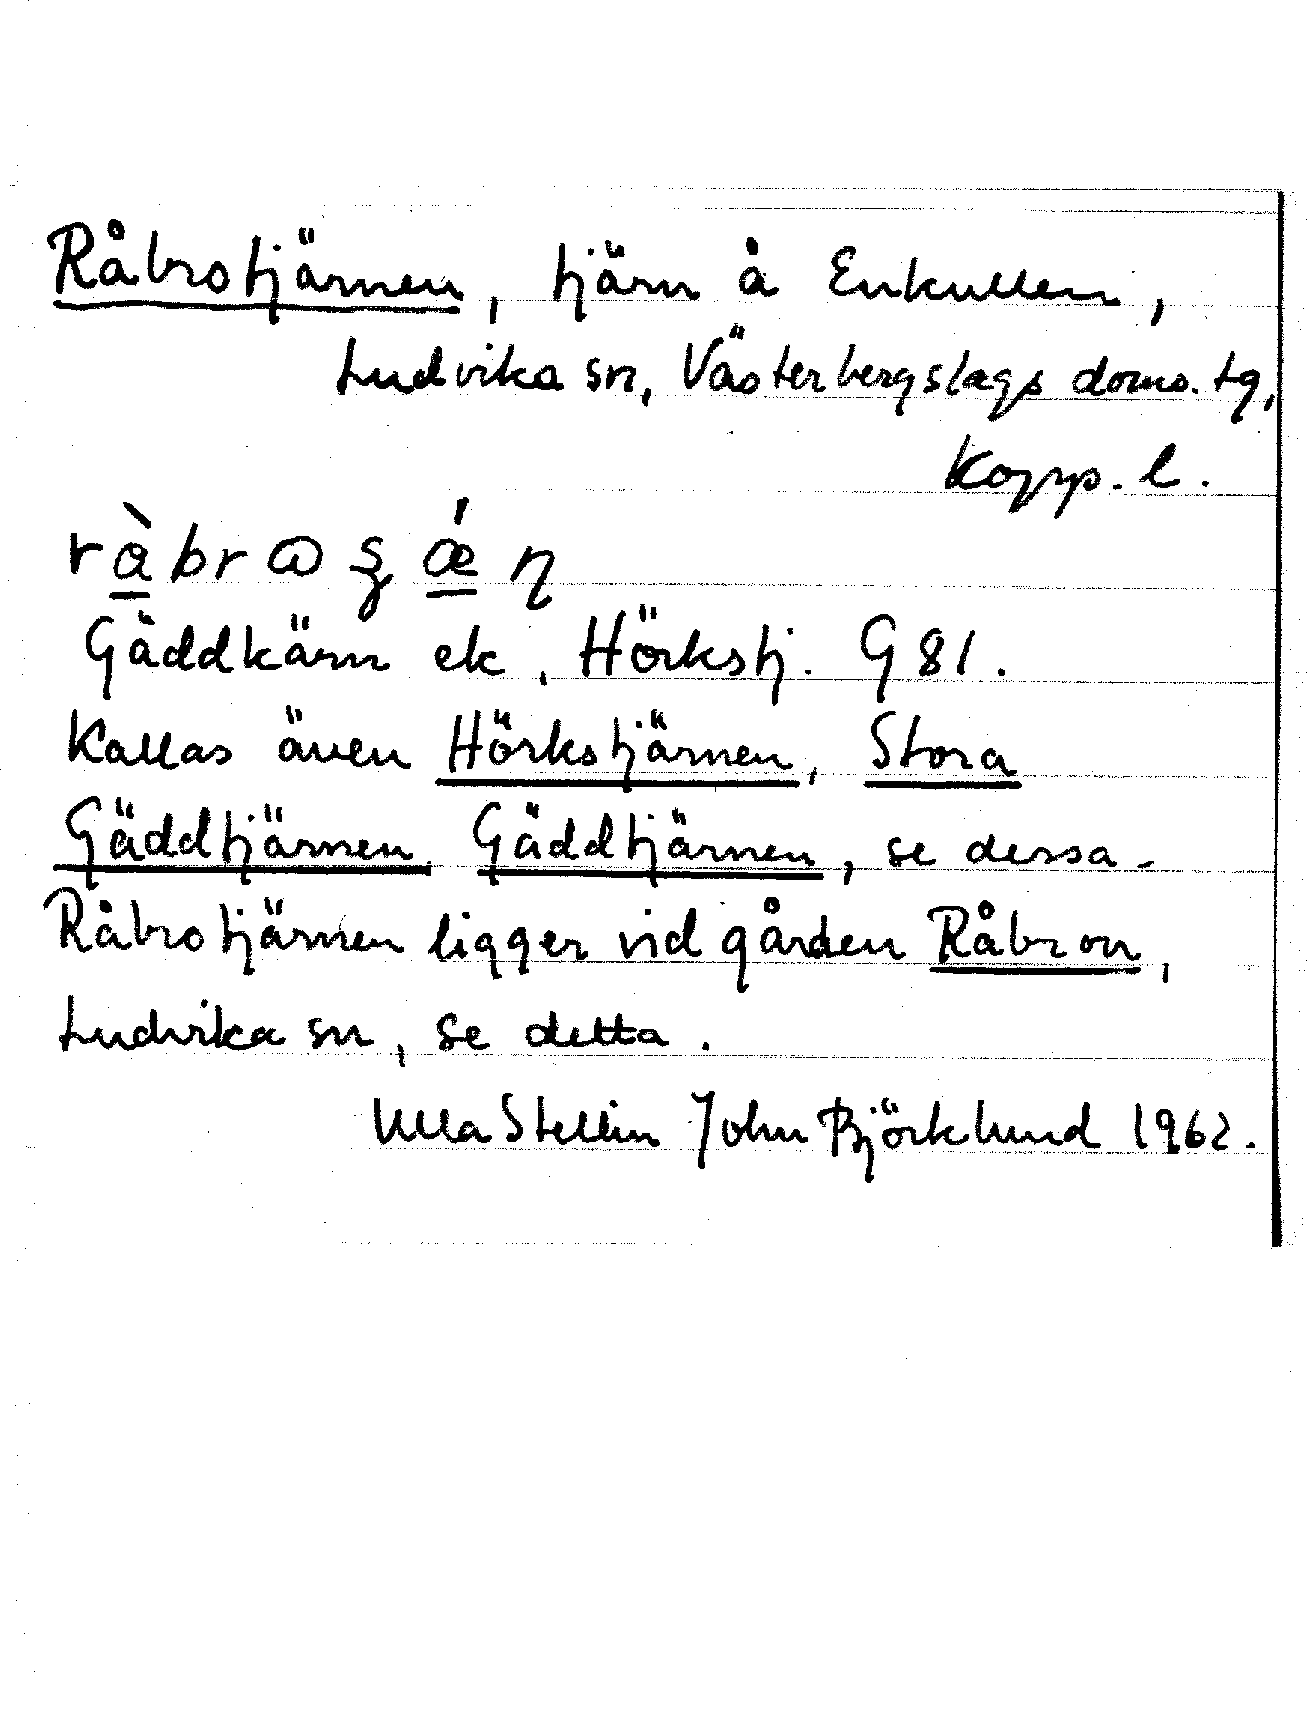 Råbrotjärnen, tjärn å Enkullen,
Ludvika sn, Västerbergslags doms. tg,
Kopp. l.
Gäddkärn ek, Hörkstj. G 81.
Kallas även Hörkstjärnen, Stora
Gäddtjärnen, Gäddtjärnen, se dessa.
Råbrotjärnen ligger vid gården Råbron,
Ludvika sn, se detta.
Ulla Stellin John Björklund 1962.